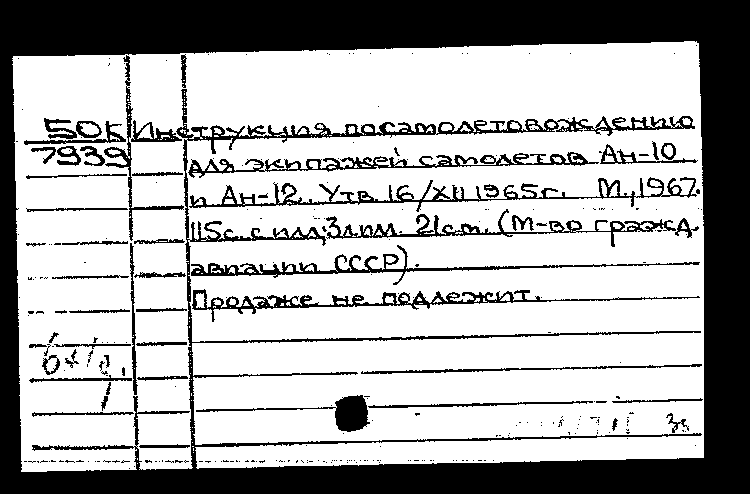 50К Инструкция по самолетовождению
7939 для экипажей самолетов Ан-10
и Ан-12. Утв. 16/XII 1965г. М., 1967.
115с. с илл; 3л. илл. 21см. (М-во гражд.
авиации СССР).
Продаже не подлежит.